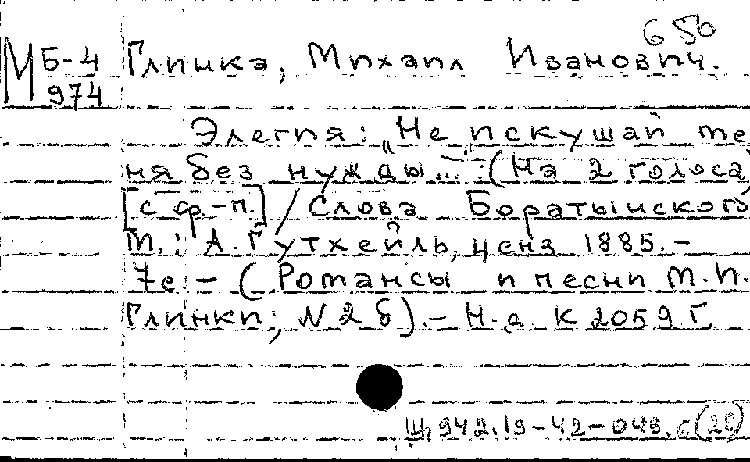 650
М Б-4 Глинка, Михаил Иванович.
974
Элегия: "Не искушай ме
ня без нужды..." : (На 2 голоса
[с ф-п.] / Слова Боратынского
М.: А. Гутхейль, ценз 1885.-
7с - (Романсы и песни М.И.
Глинки; N 2 б). - Н.д. К 2059 Г.
Ш.942.19-42-049.